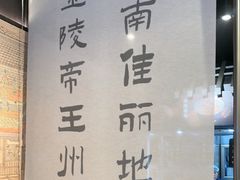 南佳丽地
金陵帝王州